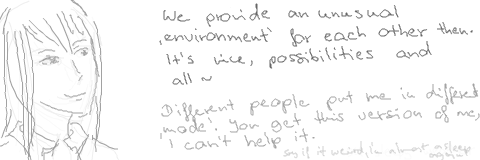 We provide an unusual
'environment' for each other then.
It's nice, possibilities and
all ~
Different people put me in different
'mode'. You get this version of me,
I can't help it.
sry if it weird, im almost asleep